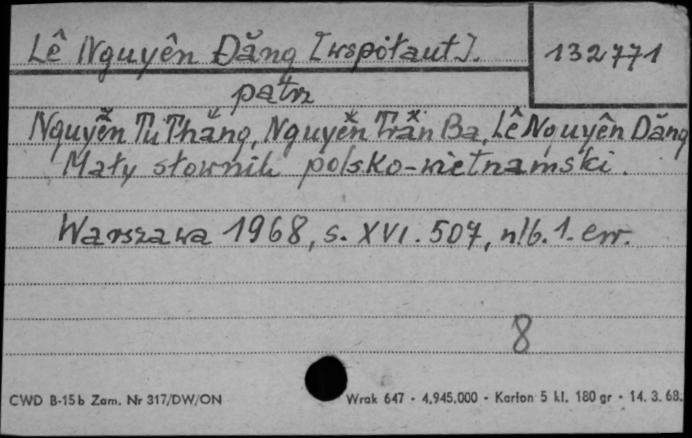 Lê Nguyên Đăng [współaut].
132771
patrz
Nguyễn Tu Thăng, Nguyễn Trăn Ba, Lê Nguyên Dăng
Mały słownik polsko-wietnamski.
Warszawa 1968, s. XVI. 507, nlb. 1. err.
8
CWD B-15b Zam. Nr 317/DW/ON
Wrak 647 - 4.945.000 - Karton 5 kl. 180 gr - 14. 3. 68.